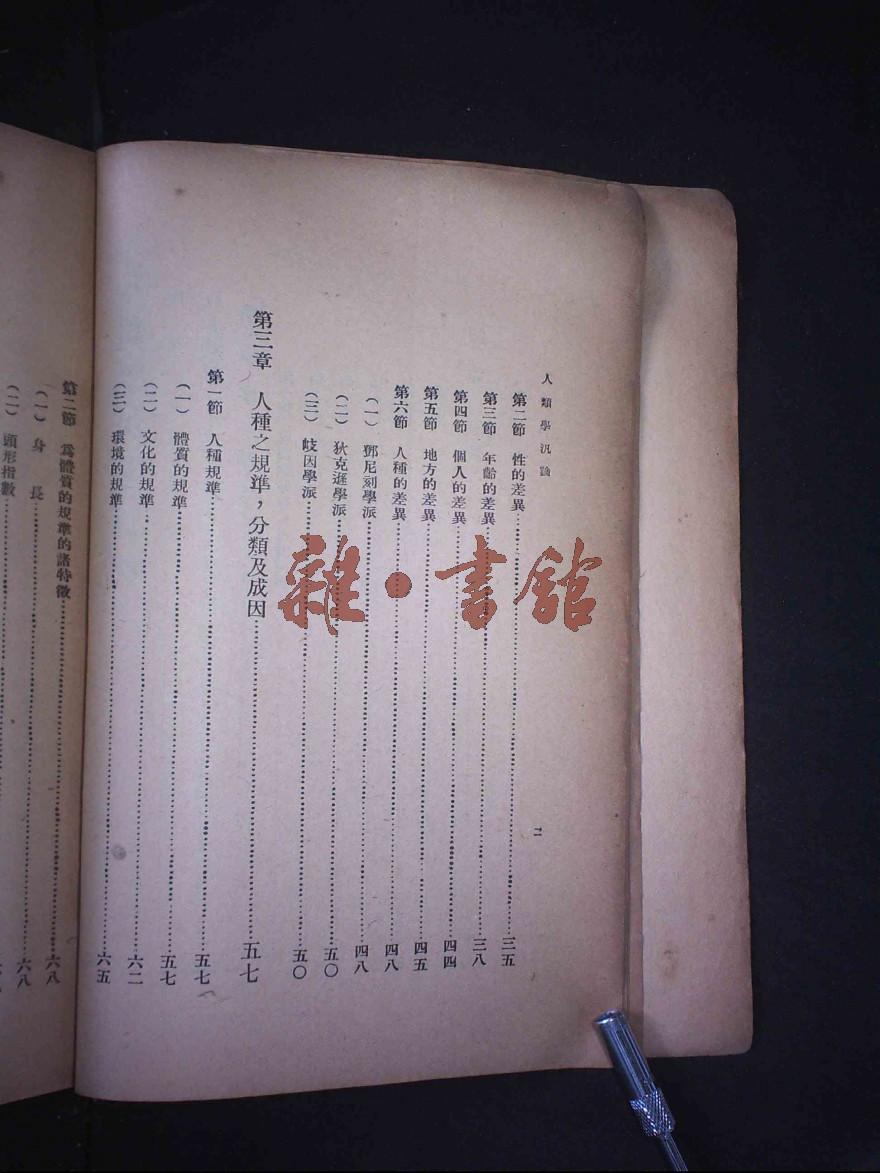 人類學汎論
二
第二節 性的差異……三五
第三節 年齡的差異……三八
第四節 個人的差異……四四
第五節 地方的差異……四五
第六節 人種的差異……四八
(一) 鄧尼刻學派……四八
(二) 狄克遜學派……五〇
(三) 歧因學派……五〇
第三章 人種之規準，分類及成因……五七
第一節 人種規準……五七
(一) 體質的規準……五七
(二) 文化的規準……六二
(三) 環境的規準……六五
第二節 爲體質的規準的諸特徵……六八
(一) 身 長……六八
(二) 頭形指數……
雜·書館